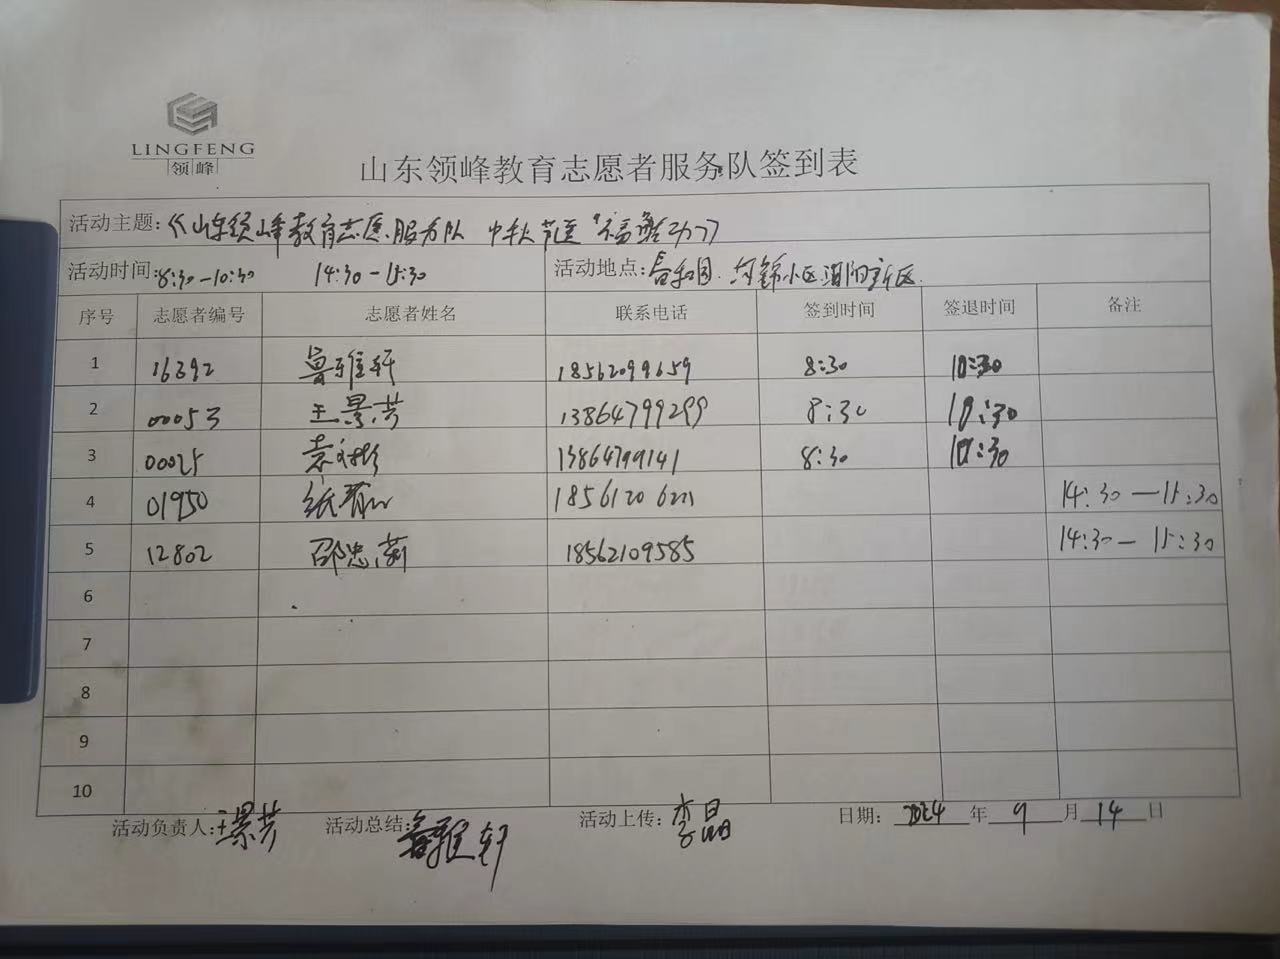 LINGFENG
领峰
山东领峰教育志愿者服务队签到表
活动主题:《山东领峰教育志愿服务队 中秋节送"福
活动时间:8:30-10:30 14:30-15:30 活动地点:
序号 志愿者编号 志愿者姓名 联系电话 签到时间 签退时间 备注
1 16392 鲁雅轩 18562099659 8:30 10:30
2 00053 王景芳 13864799299 8:30 10:30
3 00025 袁 13864799141 8:30 10:30
4 01950 纸 14:30-15:30
5 12802 邵忠 18562109585 14:30-15:30
6
7
8
9
10
活动负责人:王景芳 活动总结:鲁雅轩 活动上传:李晶 日期: 2024 年 9 月 14 日